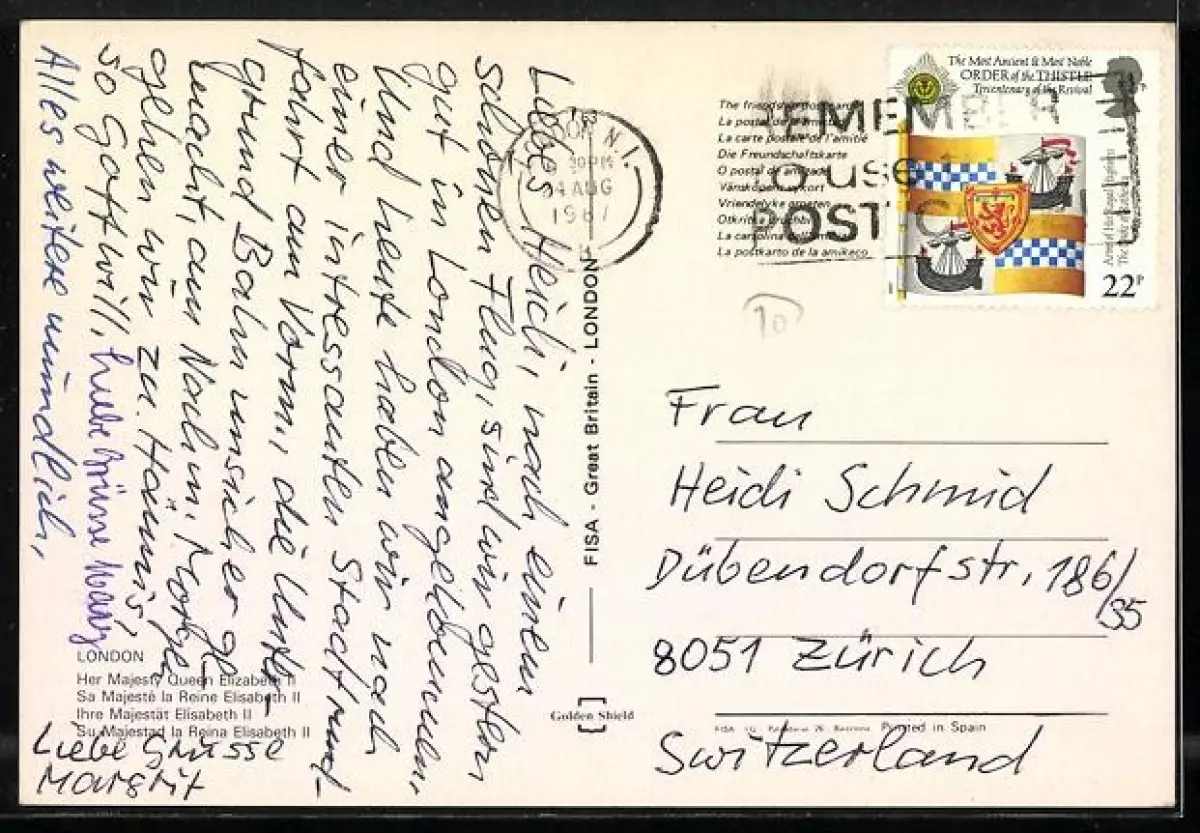 Liebes Heidi, nach einem
schönen Flug, sind wir gestern
gut in London angekommen.
Und heute haben wir nach
einer intressanten Stadtrund-
fahrt am Vorm. die Unter-
grund Bahn unsicher ge-
macht, am Nachm. Morgen
gehen wir zu. Hännis,
so Gott will, Liebe Grüsse
Alles weitere mündlich,
Liebe Grüsse
Margrit
LONDON
Her Majesty Queen Elizabeth II
Sa Majesté la Reine Elisabeth II
Ihre Majestät Elisabeth II
Su Majestad la Reina Elisabeth II
FISA - Great Britain - LONDON
Golden Shield
The friendship postcard
La postal de la
La carte postale de l'amitié
Die Freundschaftskarte
O postal da amizade
Vänskapens vykort
Vriendelyke groeten
Otkritka
La cartolina
La postkarto de la amikeco
N.I.
30PM
AUG
1987
MEMBER
use
POST
The Most Ancient & Most Noble
ORDER of the THISTLE
Tercentenary of the Revival
22P
10
Frau
Heidi Schmid
Dübendorfstr. 186/35
8051 Zürich
Switzerland
Printed in Spain